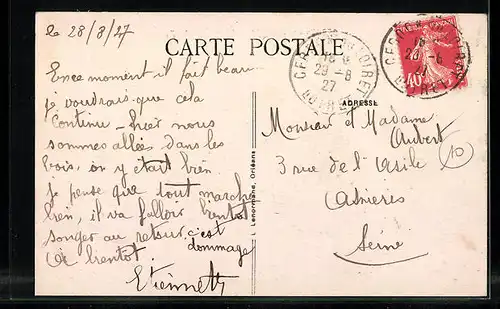 le 28/8/27
CARTE POSTALE
En ce moment il fait beau
je voudrais que cela
continu - hier nous
sommes allées dans les
bois, on y était bien.
Je pense que tout marche
bien, il va falloir bientôt
songer au retour c'est
dommage
à bientot.
Etiennette
L. Lenormand, Orléans
LOIRET
29-8
27
ADRESSE
Monsieur et Madame
Aubert
3 rue de l'Asile
Asnieres
Seine
10
40